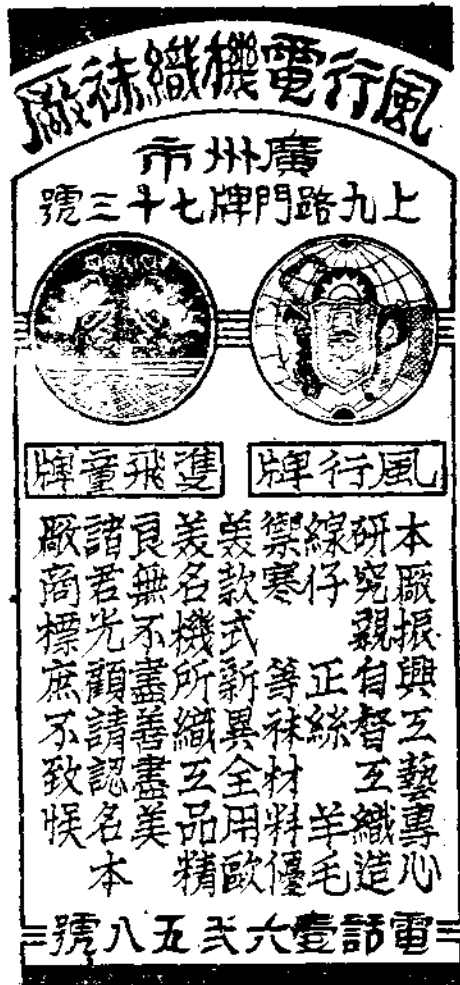 風行電機織袜厰
廣州市
上九路門牌七十三號
風行牌
雙飛童牌
本厰振興工藝專心
研究親自督工織造
線仔 正絲 羊毛
禦寒 等袜材料優
美款式新異全用歐
美名機所織工品精
良無不盡善盡美
諸君光顧請認名本
厰商標庶不致悮
電話壹六弍五八號